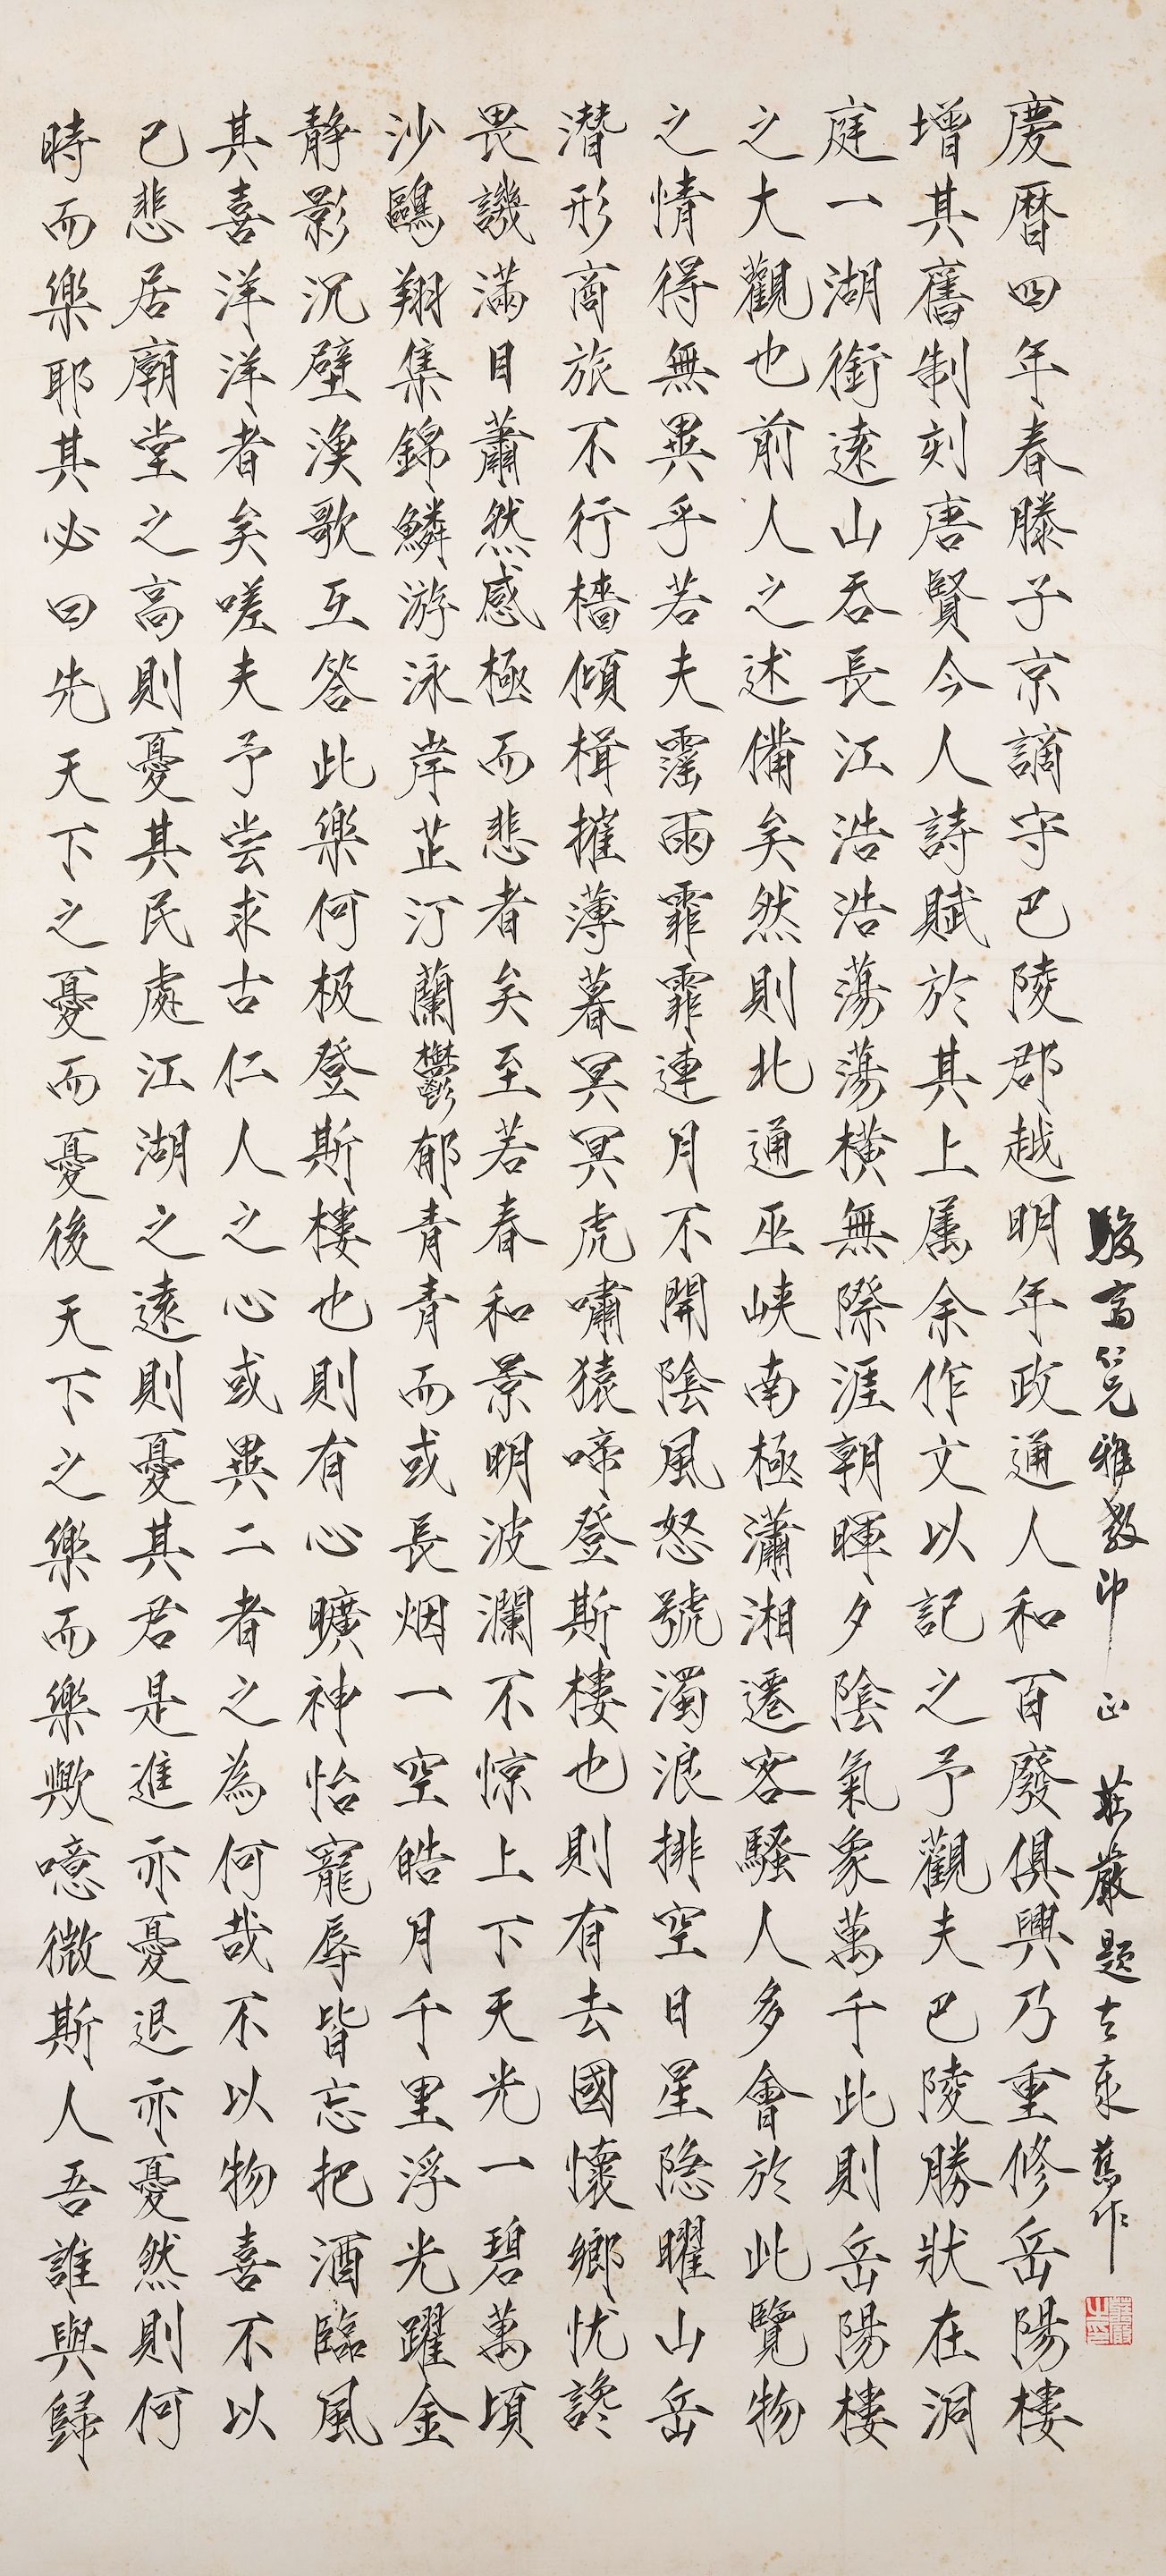 慶曆四年春滕子京謫守巴陵郡越明年政通人和百廢俱興乃重修岳陽樓
增其舊制刻唐賢今人詩賦於其上屬余作文以記之予觀夫巴陵勝狀在洞
庭一湖銜遠山吞長江浩浩蕩蕩橫無際涯朝暉夕陰氣象萬千此則岳陽樓
之大觀也前人之述備矣然則北通巫峽南極瀟湘遷客騷人多會於此覽物
之情得無異乎若夫霪雨霏霏連月不開陰風怒號濁浪排空日星隱曜山岳
潛形商旅不行檣傾楫摧薄暮冥冥虎嘯猿啼登斯樓也則有去國懷鄉忧讒
畏譏滿目蕭然感極而悲者矣至若春和景明波瀾不惊上下天光一碧萬頃
沙鷗翔集錦鱗游泳岸芷汀蘭鬱郁青青而或長烟一空皓月千里浮光躍金
靜影沉壁漁歌互答此樂何极登斯樓也則有心曠神怡寵辱皆忘把酒臨風
其喜洋洋者矣嗟夫予尝求古仁人之心或異二者之為何哉不以物喜不以
己悲居廟堂之高則憂其民處江湖之遠則憂其君是進亦憂退亦憂然則何
時而樂耶其必曰先天下之憂而憂後天下之樂而樂歟噫微斯人吾誰與歸
駿齋仁兄雅教即正 莊嚴題古泉舊作
莊嚴之印